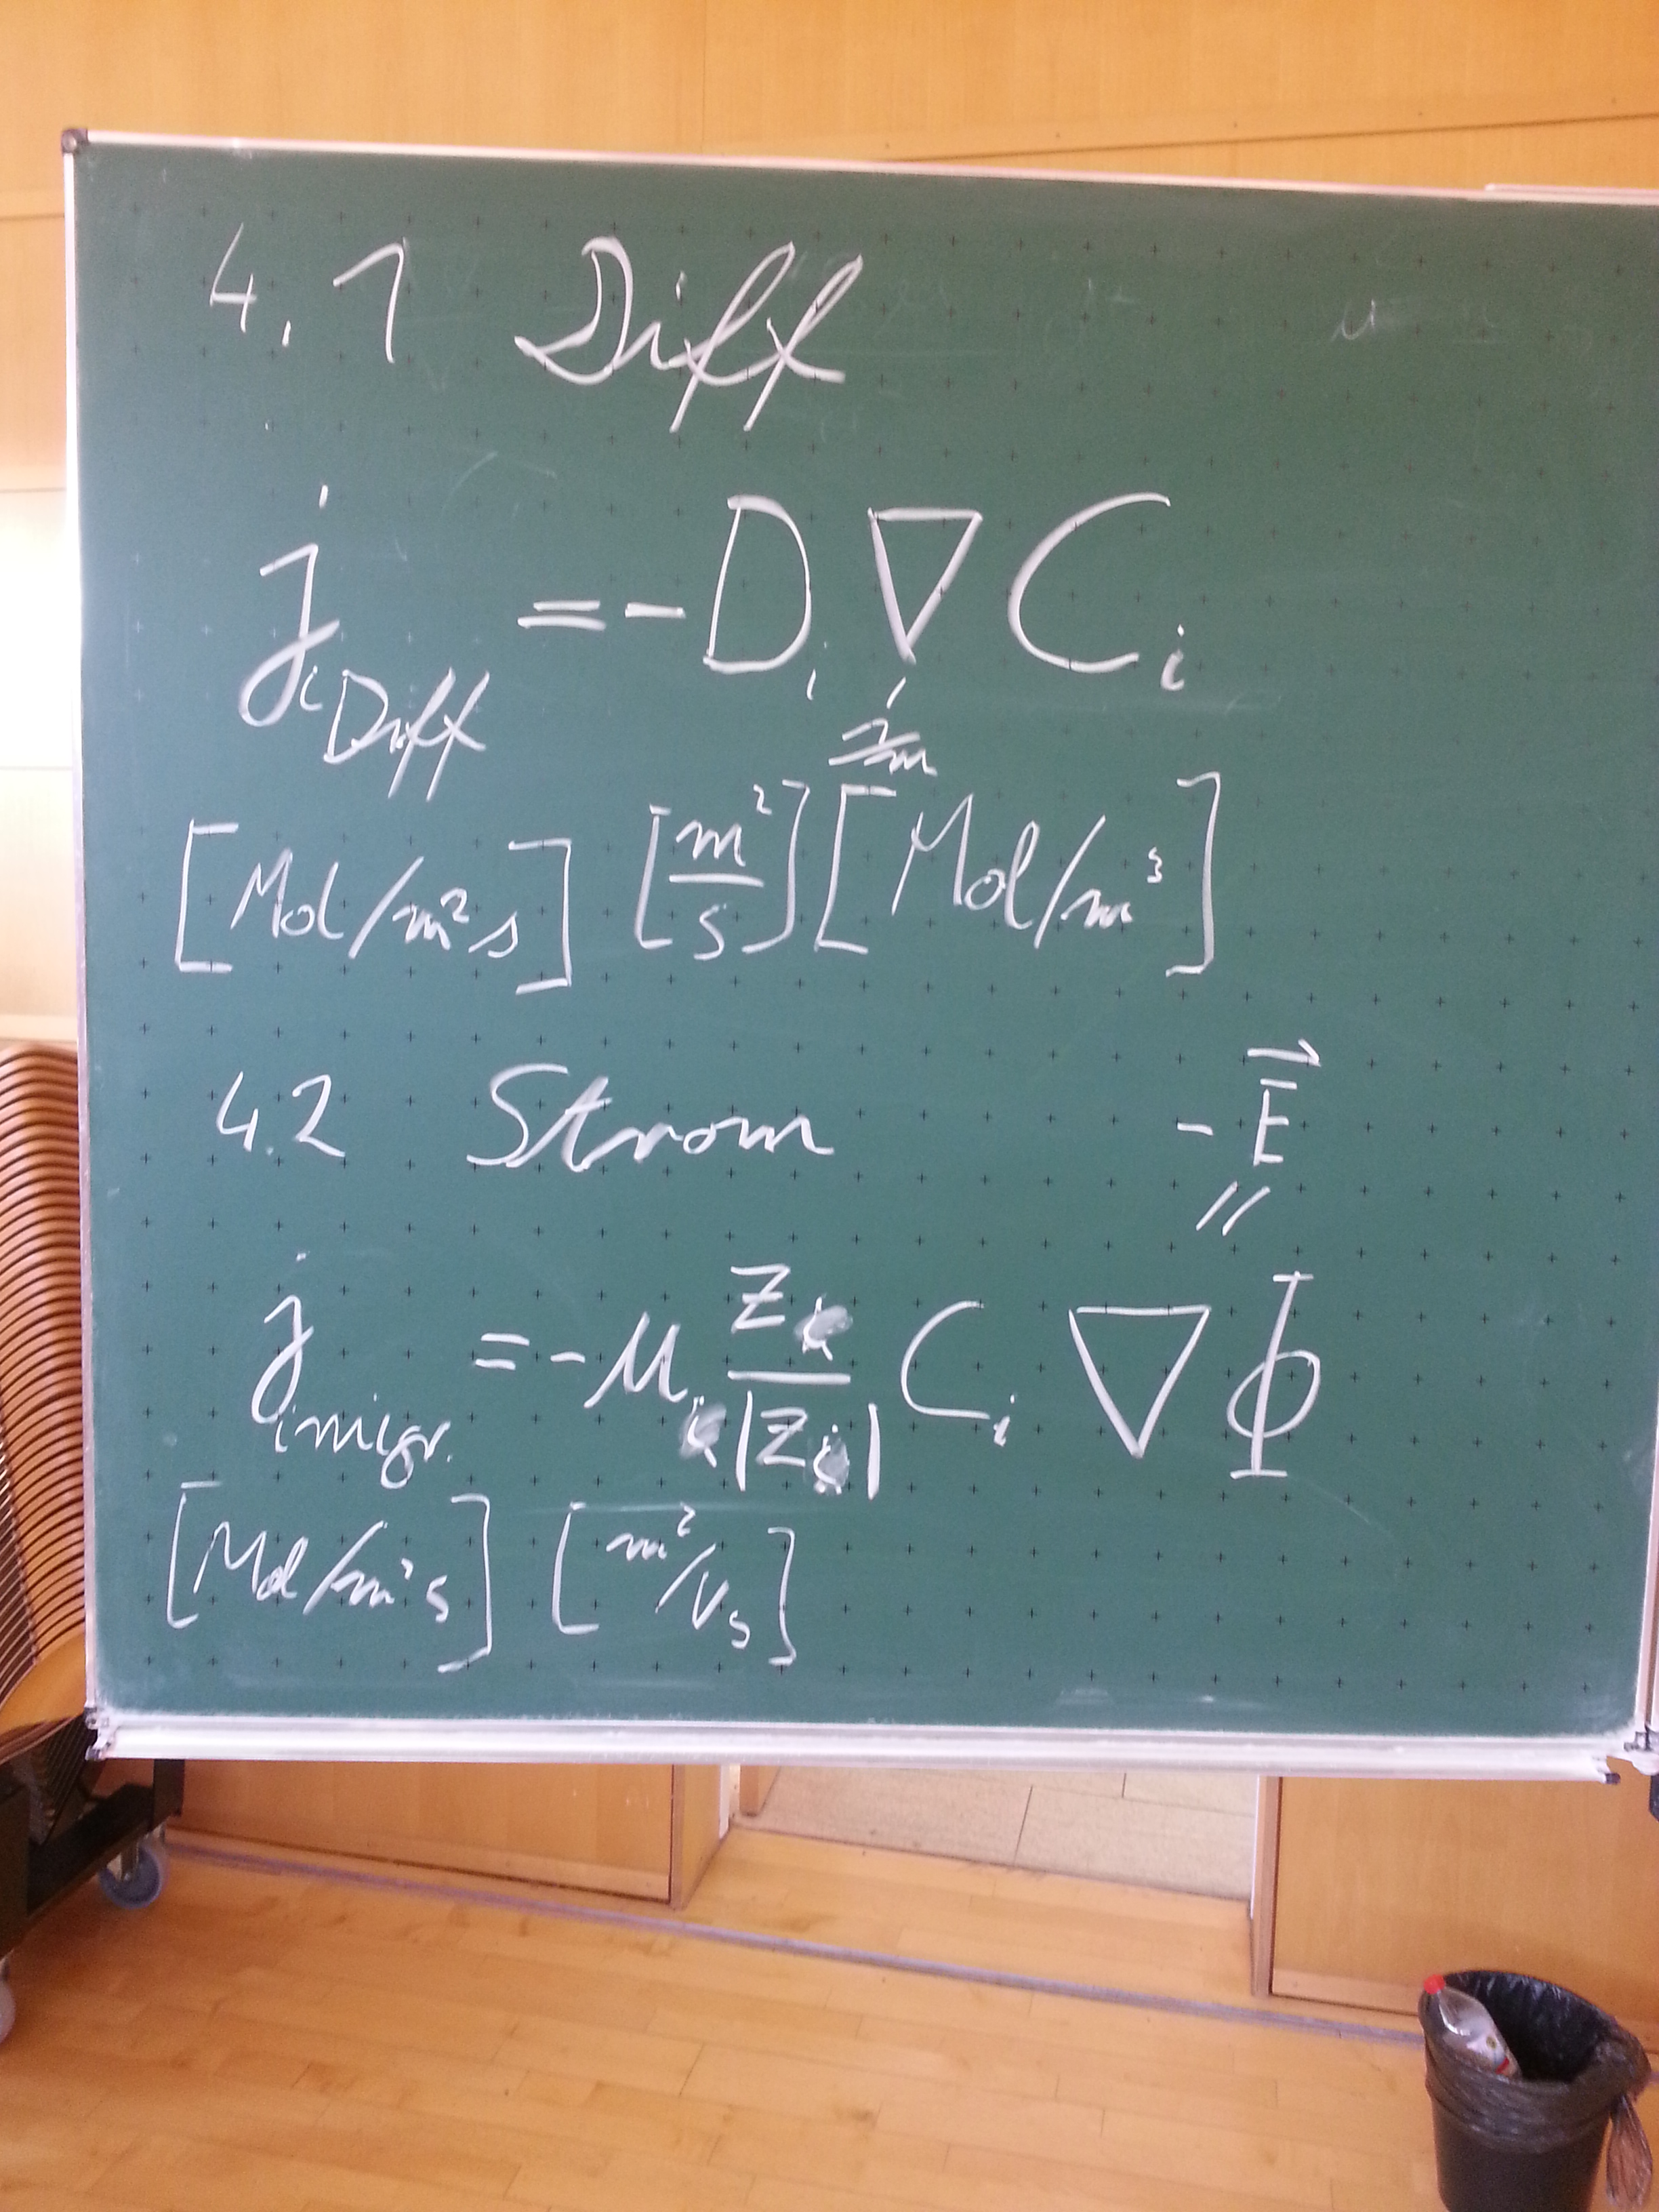 4.1 Diff
j i Diff = - D i ∇ C i
1/m
[Mol/m²s] [m²/s] [Mol/m³]
4.2 Strom - E⃗
//
j i migr. = - μ i z i / |z i| C i ∇ Φ
[Mol/m²s] [m²/Vs]